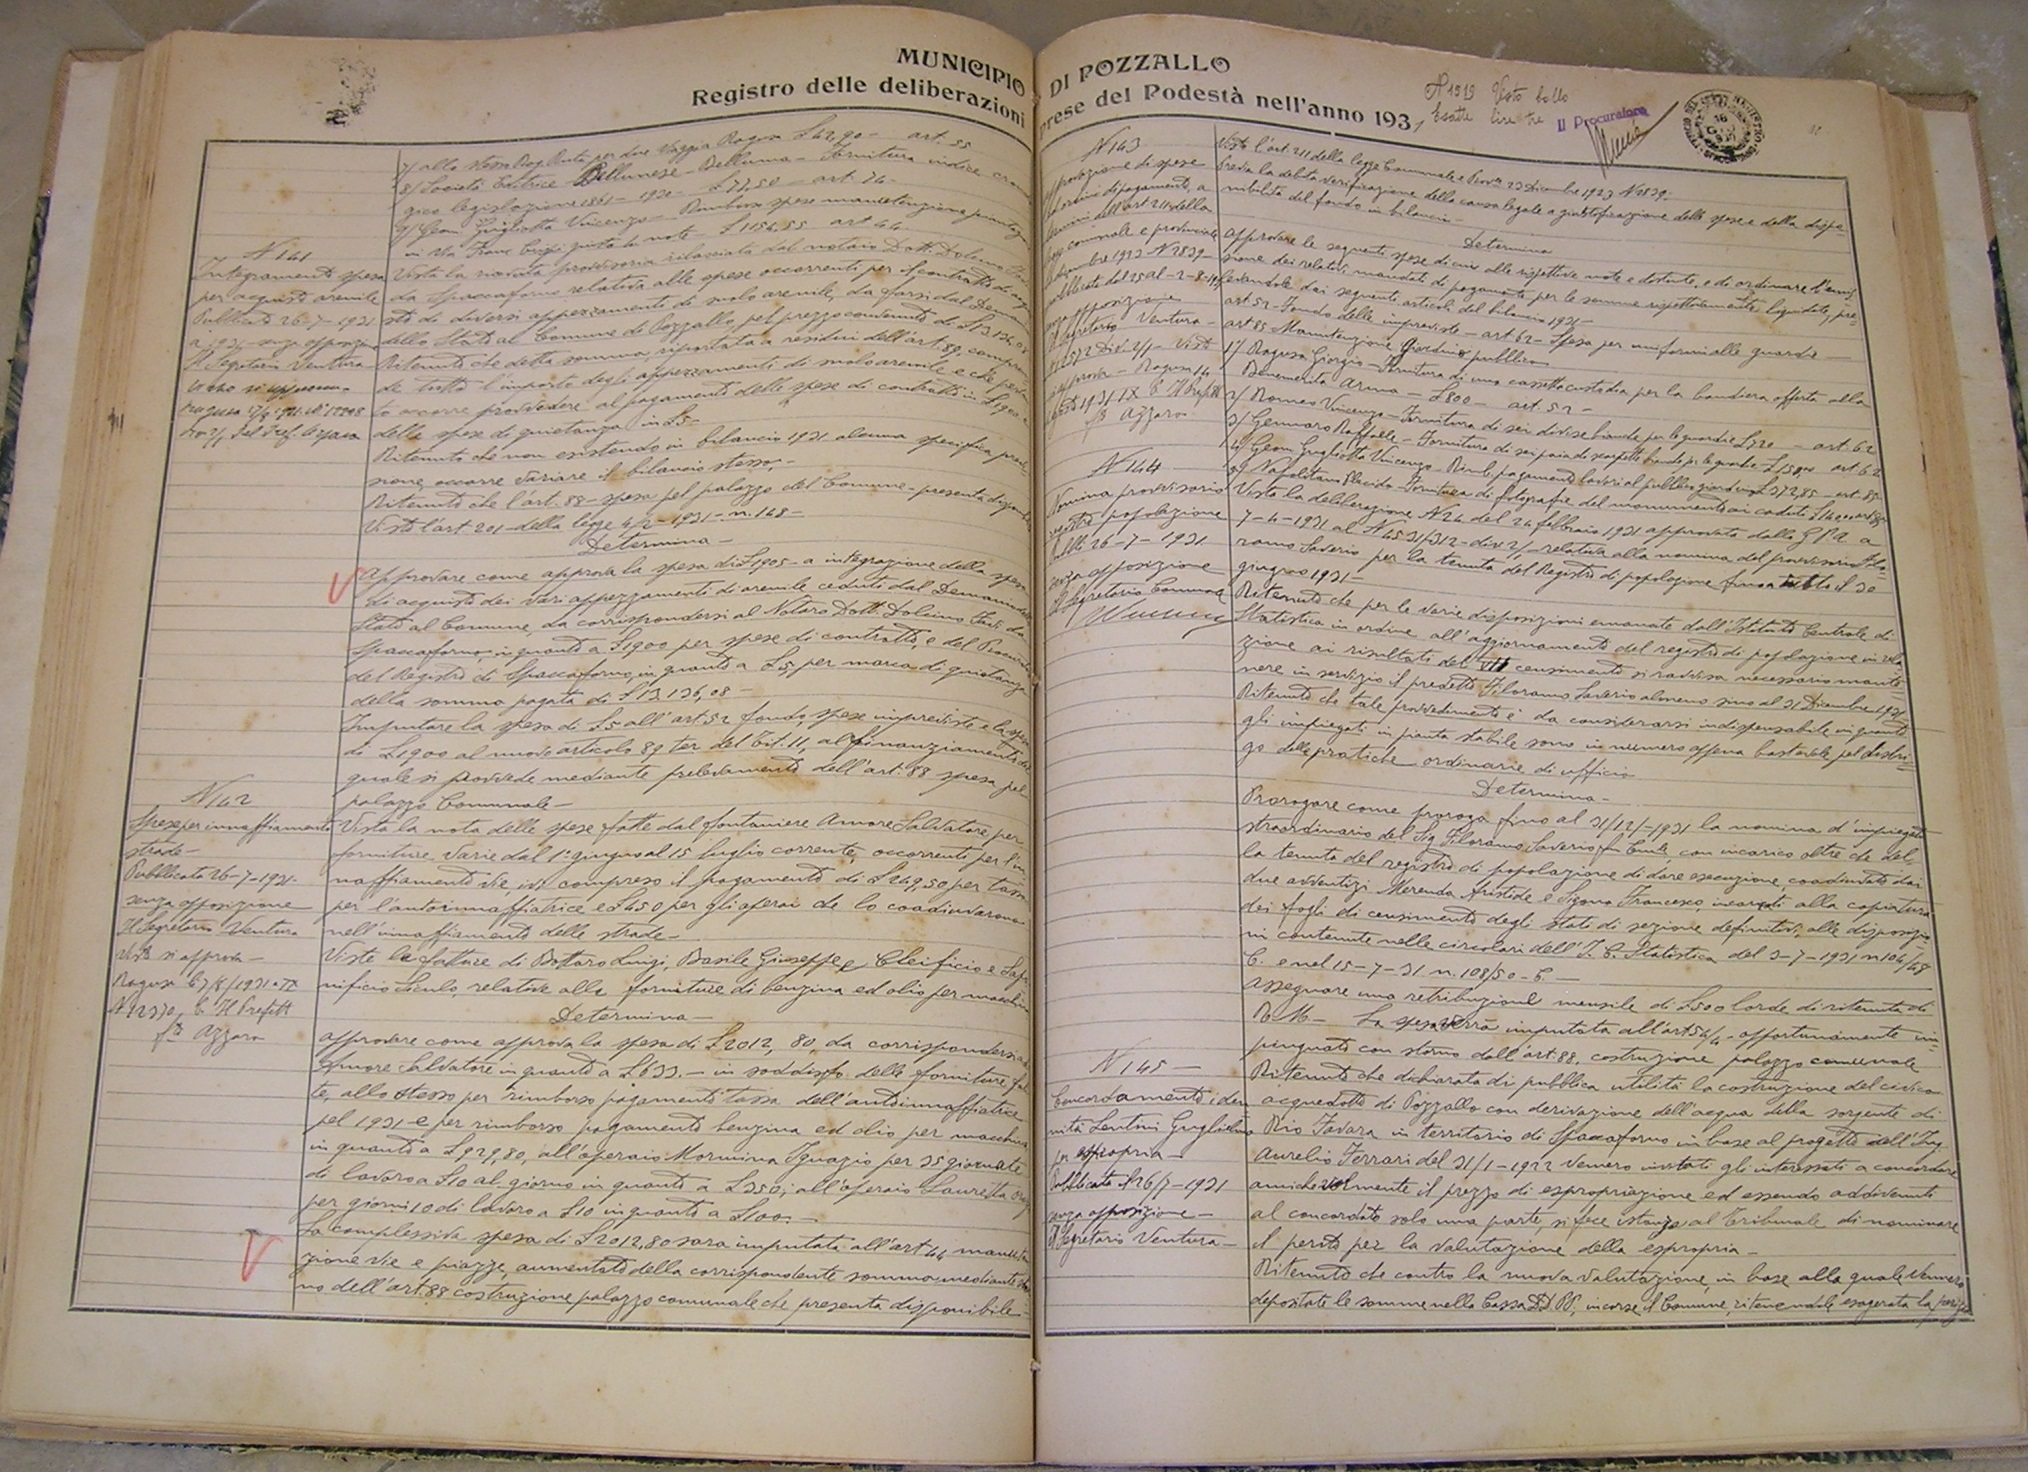 MUNICIPIO DI POZZALLO
Registro delle deliberazioni prese del Podestà nell'anno 193
N 1519 Visto bollo
Esatte lire tre Il Procuratore
gico legislazione 1861 - 1930 - £ 77,50 - art. 74 -
9/ Geom Gugliotta Vincenzo - Rimborso spese manutenzione
in via Franc Crispi giusta la note - £ 1154,55 art 44
N 141
Integramento spesa
per acquisto arenile
Pubblicato 26-7-1931
Il Segretario Ventura
Vista la nota provvisoria rilasciata dal notaio Dott. Dolcino
da Spaccaforno relativa alle spese occorrenti per il contratto di
sto di diversi appezzamenti di suolo arenile, da farsi dal
dello Stato al Comune di Pozzallo, pel prezzo convenuto di £ 13136,08
Ritenuto che detta somma, riportata a residui dell'art. 89,
de tutto l'importo degli appezzamenti di suolo arenile e che
to occorre provvedere al pagamento delle spese di contratto in £ 1900 e
delle spese di quietanza in £ 5 -
Ritenuto che non esistendo in bilancio 1931 alcuna specifica
sione, occorre variare il bilancio stesso; -
Ritenuto che l'art. 88 - spesa pel palazzo del Comune - presenta
Visto l'art 201 della legge 4/2 - 1931 - n. 148 -
Determina -
Approvare come approva la spesa di £ 1905 - a integrazione della spesa
di acquisto dei vari appezzamenti di arenile ceduti dal Demanio
Stato al Comune, da corrispondersi al Notaro Dott. Dolcino
Spaccaforno, in quanto a £ 1900 per spese di contratto, e del
del Registro di Spaccaforno, in quanto a £ 5, per marca di quietanza
della somma pagata di £ 13136,08 -
Imputare la spesa di £ 5 all'art. 52 fondo, spese impreviste e la spesa
di £ 1900 al nuovo articolo 89 ter del Tit. 11, al finanziamento del
quale si provvede mediante prelevamento dell'art. 88 spesa pel
palazzo Comunale -
N 142
Spese per innaffiamento
strade -
Pubblicata 26-7-1931 -
senza opposizione
Il Segretario Ventura
Visto si approva -
Ragusa li 7/8/1931 - IX
Il Prefetto
fto Azzaro
Vista la nota delle spese fatte dal fontaniere Amore Salvatore per
forniture varie dal 1° giugno al 15 luglio corrente, occorrenti per l'in
naffiamento vie, ivi compreso il pagamento di £ 249,50 per tassa
per l'autoinnaffiatrice e £ 450 per gli operai che lo coadiuvarono
nell'innaffiamento delle strade -
Viste le fatture di Bottaro Luigi, Basile Giuseppe, e Oleificio e Sapo
nificio Siculo, relative alla forniture di benzina ed olio per macchina
Determina -
Approvare come approva la spesa di £ 2012,80, da corrispondersi a
Amore Salvatore in quanto a £ 633. - in soddisfo delle forniture fat
te, allo stesso per rimborso pagamento tassa dell'autoinnaffiatrice
pel 1931 e per rimborso pagamento benzina ed olio per macchina
in quanto a £ 929,80, all'operaio Mormina Ignazio per 35 giornate
di lavoro a £ 10 al giorno in quanto a £ 350; all'operaio Lauretta
per giorni 10 di lavoro a £ 10 in quanto a £ 100. -
La complessiva spesa di £ 2012,80 sarà imputata all'art 44 manuten
zione vie e piazze, aumentato della corrispondente somma mediante stor
no dell'art. 88 costruzione palazzo comunale che presenta disponibile -
N 143
Approvazione di spese
ed ordini di pagamento, a
termini dell'art 211 della
legge comunale e provinciale
senza opposizione
Il Segretario Ventura -
fto Azzaro
Visto l'art. 211 della legge Comunale e Prov.le 23 Dicembre 1923 N 2839 -
Previa la debita verificazione della causa legale e giustificazione delle spese e della dispo-
nibilità del fondo in bilancio -
Determina
Approvare le seguenti spese di cui alle rispettive note e distinte, e di ordinare l'emis
sione dei relativi mandati di pagamento per le somme rispettivamente liquidate, pre-
levandole dai seguenti articoli del bilancio 1931 -
art 52 - Fondo delle impreviste - art 62 - Spesa per uniformi alle guardie -
art 85 Manutenzione Giardino pubblico
1°/ Ragusa Giorgio - Fornitura di una cassetta custodia per la bandiera offerta alla
Benemerita Arma - £ 800 - art. 52 -
2/ Romeo Vincenzo - Fornitura di sei divise bianche per le guardie £ 720 - art. 62
3/ Gennaro Raffaele - Fornitura di sei paia di scarpette bianche per le guardie £ 150 art 62
N 144
Nomina provvisorio
registro popolazione
Pubbl. 26-7-1931
senza opposizione
Il Segretario Comunale
Vista la deliberazione N 24 del 24 febbraio 1931 approvata dalla G P A a
7-4-1931 al N 4531/312 - div 2/, relativa alla nomina del provvisorio Filo-
ramo Saverio per la tenuta del Registro di popolazione fino a tutto il 30
giugno 1931 -
Ritenuto che per le varie disposizioni emanate dall'Istituto Centrale di
Statistica in ordine all'aggiornamento del registro di popolazione in rela
zione ai risultati del VII censimento si ravvisa necessario mante-
nere in servizio il predetto Filoramo Saverio almeno sino al 31 Dicembre 1931 -
Ritenuto che tale provvedimento è da considerarsi indispensabile in quanto
gli impiegati in pianta stabile sono in numero appena bastevole pel disbri-
go delle pratiche ordinarie di ufficio
Determina -
Prorogare come proroga fino al 31/12/-1931 la nomina d'impiegato
straordinario del Sig Filoramo Saverio fu Emilio, con incarico oltre che del
la tenuta del registro di popolazione di dare esecuzione, coadiuvato dai
due avventizi Merenda Aristide e Sigona Francesco, incaricati alla copiatura
dei fogli di censimento degli stati di sezione definitivi, alle disposizio
ni contenute nelle circolari dell'I. C. Statistica del 3-7-1931 n 104/48
C. e nel 15-7-31 n. 108/50 - C. -
Assegnare una retribuzione mensile di £ 500 lorde di ritenuta di
R. M. - La spesa verrà imputata all'art 54/4 - opportunamente im-
pinguato con storno dall'art: 88, costruzione palazzo comunale
N 145 -
Concordamento inden
nità Lentini Guglielmo
per espropria -
Pubblicato il 26/7 - 1931
senza opposizione -
Il Segretario Ventura -
Ritenuto che dichiarata di pubblica utilità la costruzione del civico
acquedotto di Pozzallo con derivazione dell'acqua della sorgente di
Rio Favara in territorio di Spaccaforno in base al progetto dell'Ing
Aurelio Ferrari del 31/1-1922 vennero invitati gli interessati a concordare
amichevolmente il prezzo di espropriazione ed essendo addivenuti
al concordato solo una parte, si fece istanza al Tribunale di nominare
il perito per la valutazione della espropria -
Ritenuto che contro la nuova valutazione, in base alla quale vennero
depositate le somme nella Cassa DD. PP., incorse il Comune, ritenendole esagerata la